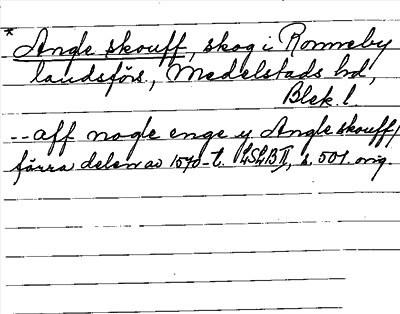 * Angle skouff, skog i Ronneby
landsförs., Medelstads hd,
Blek. l.
-- aff nogle enge y Angle skouff /
förra delen av 1570-t. LSLB II, s. 501. orig.